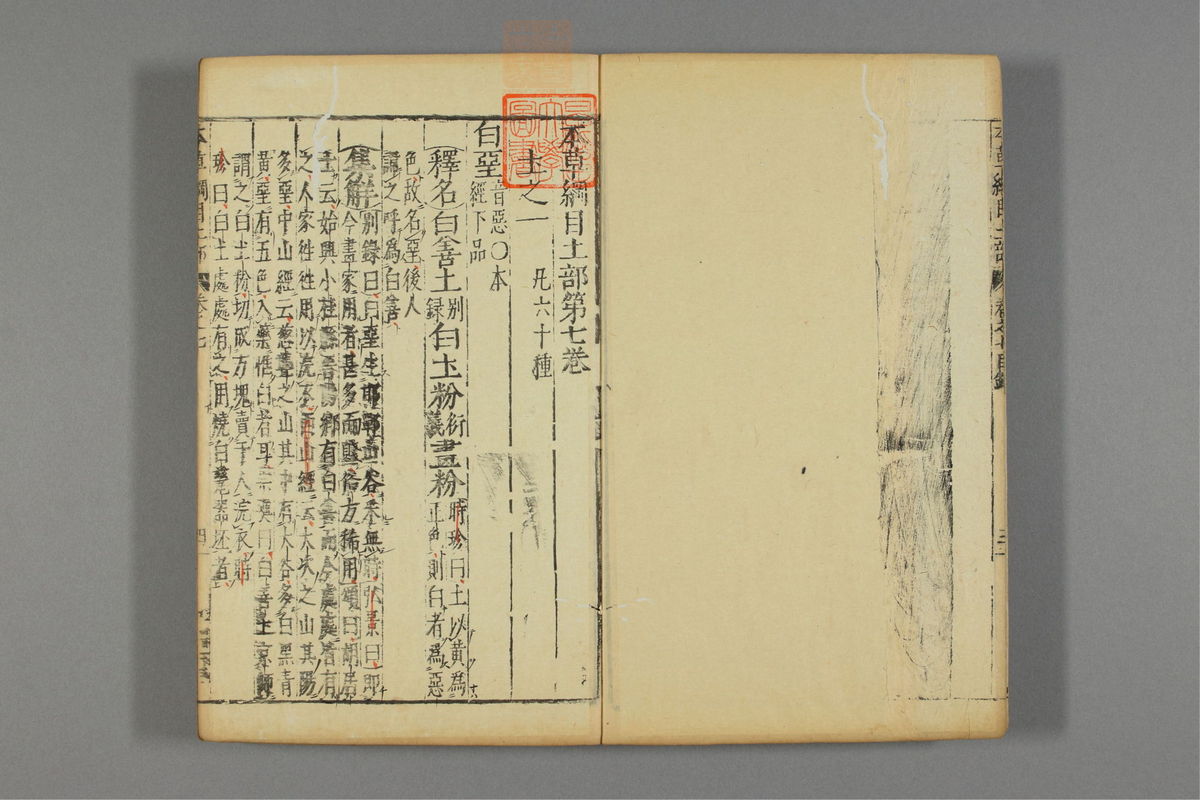 本草綱目土部第七卷
土之一 凡六十種
白堊 音惡○本經下品
釋名 白善土 別錄 白土粉 衍義 畫粉 時珍曰土以黃為正色則白者為惡
色故名堊後人
諱之呼為白善
集解 別錄曰白堊生邯鄲山谷采無時弘景曰即
今畫家用者甚多而賤俗方稀用頌曰胡居
士云始興小桂縣晉陽鄉有白善而今處處皆有
之人家往往用以浣衣西山經云大次之山其陽
多堊中山經云葱聾之山其中有大谷多白黑青
黃堊有五色入藥惟白者耳宗奭曰白善土京師
謂之白土粉切成方塊賣于人浣衣時
珍曰白土處處有之用燒白瓷器坯者
本草綱目土部 卷之七